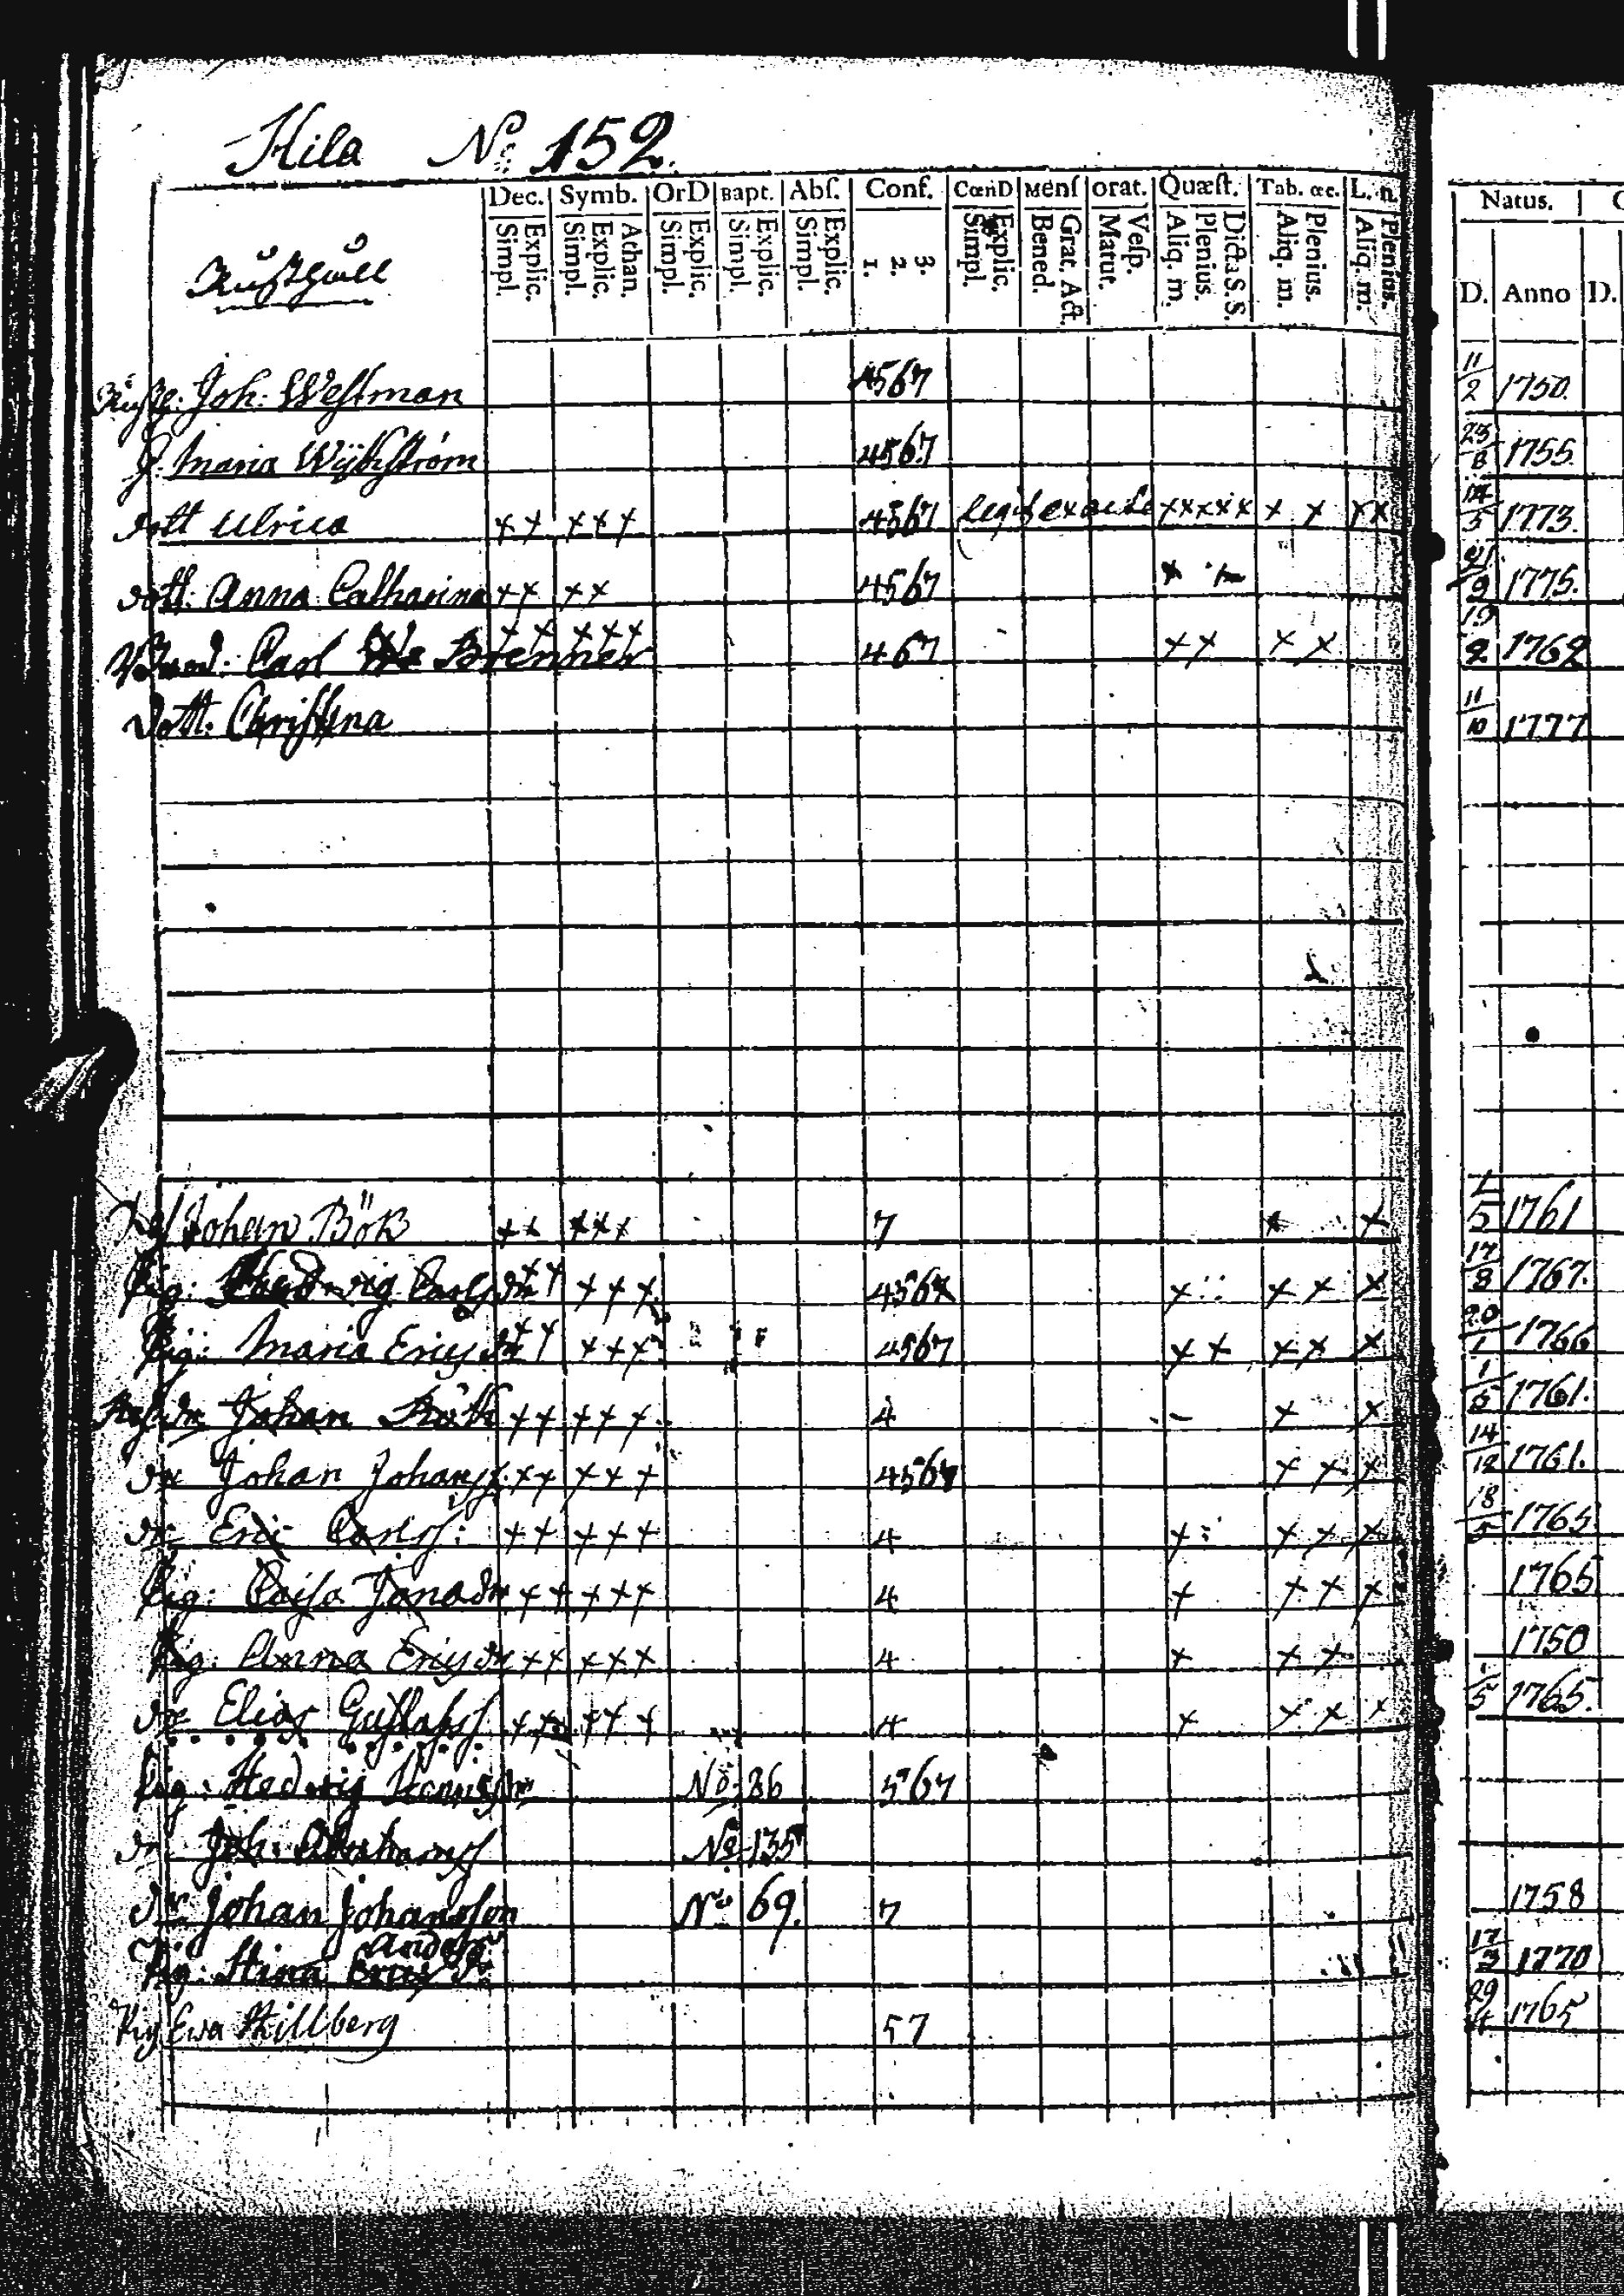 Kila No: 152.
Dec. Symb. OrD Bapt. Abſ. Conf. CœnD Menſ orat. Quæſt. Tab. œc. L. n. Natus.
Explic. Simpl. Athan. Explic. Simpl. Explic. Simpl. Explic. Simpl. Explic. Simpl. 3. 2. 1. Explic. Simpl. Grat. Act. Bened. Veſp. Matut. Dicta S.S. Plenius. Aliq. m. Plenius. Aliq. m. Plenius. Aliq. m. D. Anno D.
Rusthåll
Joh: Westman 4567 11/2 1750.
H. Maria 4567 25/8 1755.
dott Ulrica ++ +++ 4567 legit exacte xxxxx x x xx 5 1773.
dott: Anna Catharina ++ ++ 4567 21/9 1775.
Carl Brenner ++ +++ 467 ++ ++ 19/2 1762
Dott: Christina 11/10 1777
Johan Bök ++ +++ 7 + + 5 1761
Pig: Hedwig Carlsdr ++ +++ 456x + + + + 17/8 1767.
Pig: Maria Ericsdr ++ +++ 4567 ++ ++ + 20/1 1766
Johan ++ +++ 4 + + 1761.
dr Johan Johanss: ++ +++ 4567 + + + 14/12 1761.
dr Eric Carlss: ++ +++ 4 + + + + 18/5 1765
Pig: Caisa Jonadr ++ +++ 4 + + + + 1765
Pig: Anna Ericsdr ++ +++ 4 + + + 1750
dr Elias Gustafss ++ +++ 4 + + + + 1/5 1765.
Pig: Hedwig No: 86 567
dr Joh: Abrahamss No 135
dr: Johan Johansson No 69. 7 1758
Anders
Pig: Stina Ericsdr 17/3 1770
Pig Ewa Killberg 57 29 1765